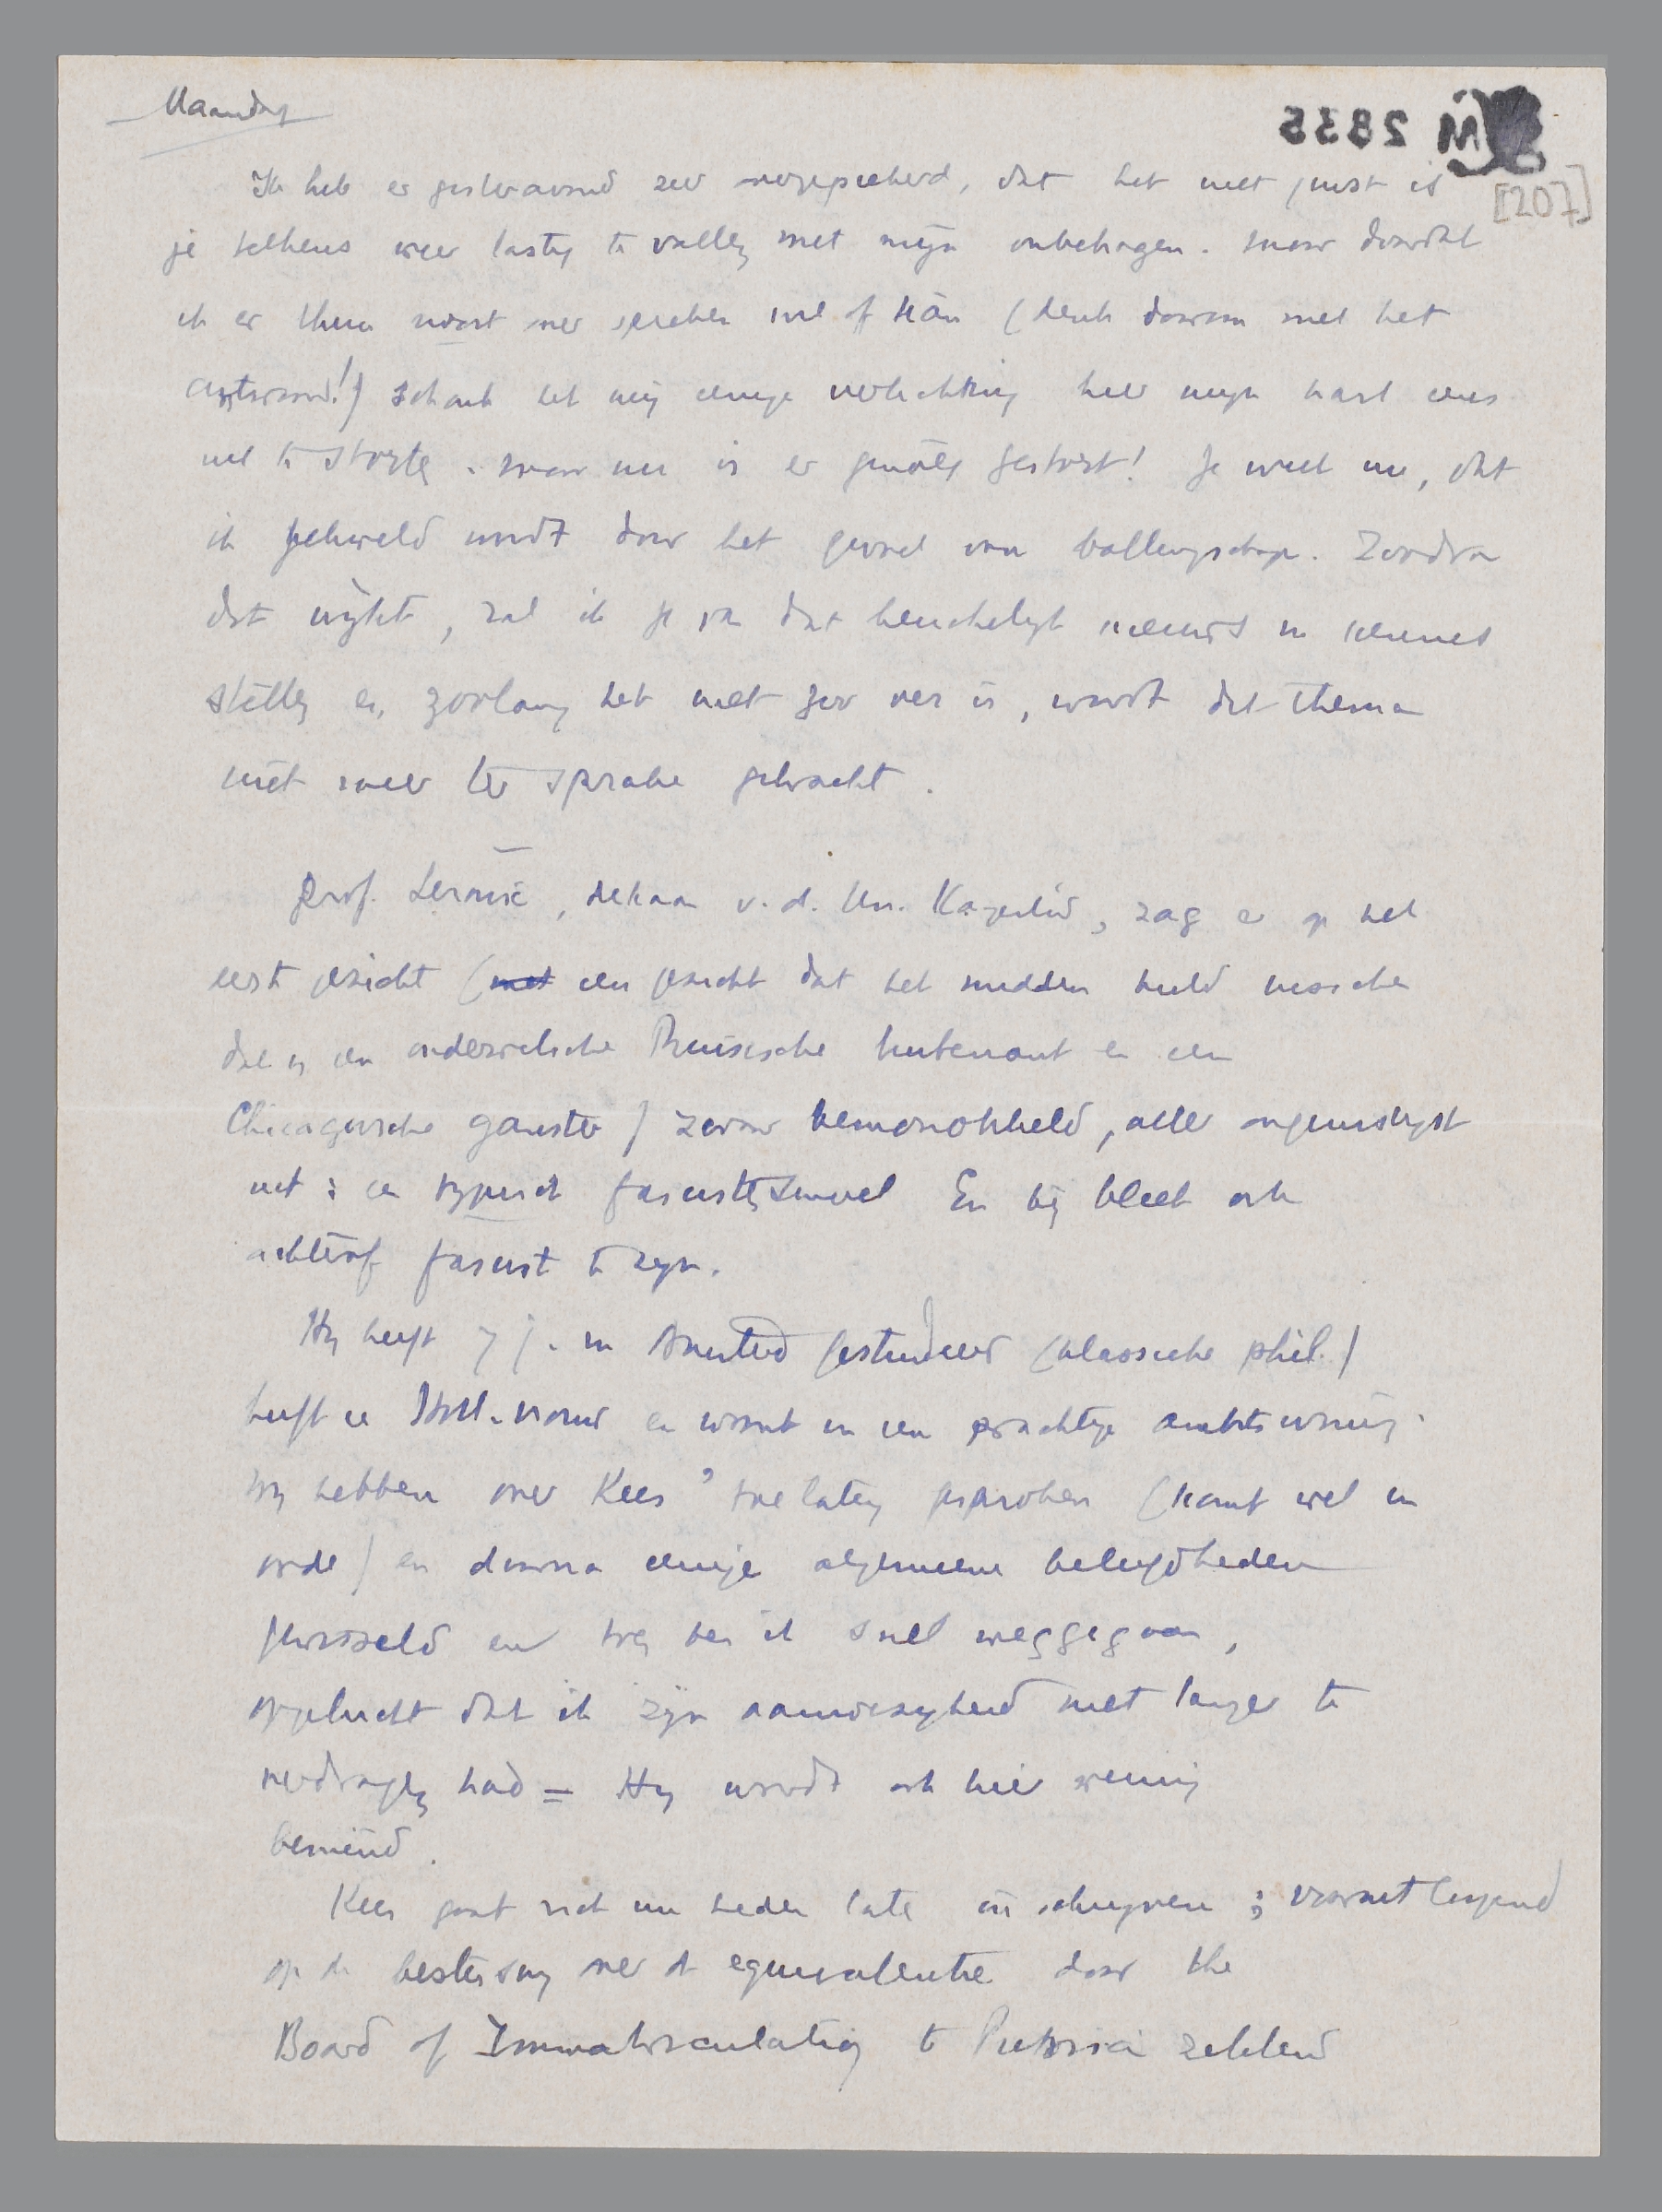 Maandag
M 2835
[207]
Ik heb er gisteravond zeer over gepiekerd, dat het niet juist is
je telkens weer lastig te vallen met mijn onbehagen. Maar doordat
ik er thuis nooit over spreken wil of kàn (denk daarom met het
antwoord!) schonk het mij eenige verlichting hier mijn hart eens
uit te storten. Maar nu is er genoeg gestort! Je weet nu, dat
ik gekweld wordt door het gevoel van ballingschap. Zoodra
dat wijkt, zal ik je van dat heuchelijk nieuws in kennis
stellen en, zoolang het niet zoo ver is, wordt dit thema
niet meer ter sprake gebracht.
Prof. , dekaan v. d. Un. Kaapstad, zag er op het
eerste gezicht (een gezicht dat het midden hield tusschen
dat van een ouderwetsche Pruisische luitenant en een
Chicagosche gangster) zwaar bemonokkeld, aller ongunstigst
uit: een typisch fascisten En hij bleek ook
achteraf fascist te zijn.
Hij heeft 7 j. in Amsterd gestudeerd (klassieke phil.)
heeft een Holl. vrouw en woont in een prachtige ambtswoning.
Wij hebben over Kees' toelating gesproken (komt wel in
orde) en daarna eenige algemeene beleefdheden
gewisseld en toen ben ik snel weggegaan,
opgelucht dat ik zijn aanwezigheid niet langer te
verdragen had = Hij wordt ook hier weinig
bemind.
Kees gaat zich nu heden laten inschrijven; vooruitloopend
op de beslissing over de equivalentie door the
Board of Immatriculation te Pretoria zetelend